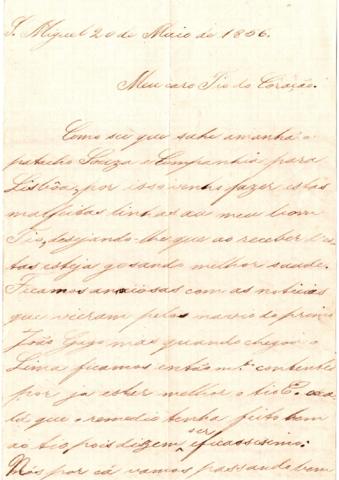 S. Miguel 20 de Maio de 1806.
Meu caro Tio do Coração.
Como sei que sahe amanhã o
patacho Souza e Companhia para
Lisbôa, por isso venho fazer estas
mal feitas linhas ao meu bom
Tio, desejando-lhe que ao receber d'es-
tas esteja gosando melhor saude.
Ficamos anciosas com as noticias
que vieram pelos navio do primo
João Gago mas quando chegou o
Lima ficamos então mto contentes
por já estar melhor o tio
que o remedio tenha feito bem
ao tio, pois dizem ser eficacissimo.
Nós por cá vamos passando bem